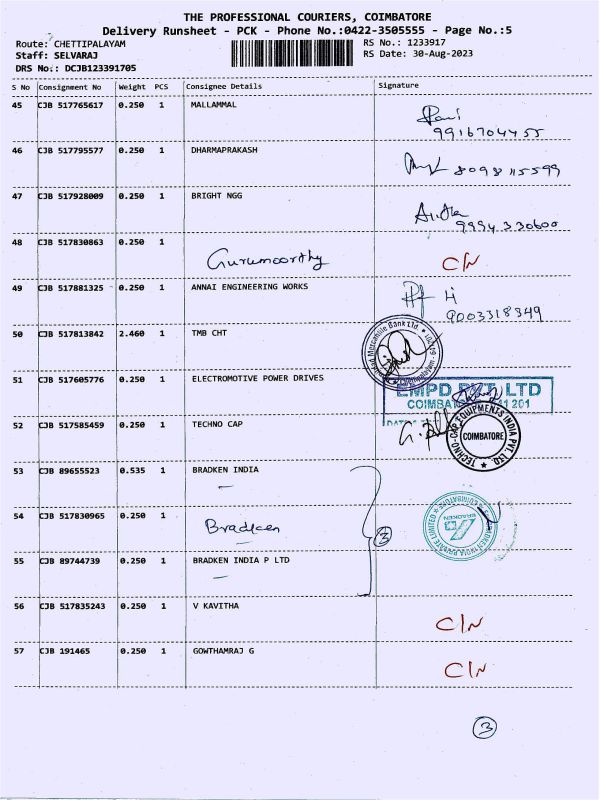 THE PROFESSIONAL COURIERS, COIMBATORE
Delivery Runsheet - PCK - Phone No.:0422-3505555 - Page No.:5
Route: CHETTIPALAYAM RS No.: 1233917
Staff: SELVARAJ RS Date: 30-Aug-2023
DRS No.: DCJB123391705
S No Consignment No Weight PCS Consignee Details Signature
45 CJB 517765617 0.250 1 MALLAMMAL
9916704455
46 CJB 517795577 0.250 1 DHARMAPRAKASH
8098115599
47 CJB 517928009 0.250 1 BRIGHT NGG
9994330600
48 CJB 517830863 0.250 1
Gurumoorthy C/N
49 CJB 517881325 0.250 1 ANNAI ENGINEERING WORKS
9003318349
50 CJB 517813842 2.460 1 TMB CHT
Mercantile Bank Ltd
51 CJB 517605776 0.250 1 ELECTROMOTIVE POWER DRIVES
EMPD PVT. LTD
52 CJB 517585459 0.250 1 TECHNO CAP
TECHNO-CAP EQUIPMENTS INDIA PVT. LTD.
COIMBATORE
53 CJB 89655523 0.535 1 BRADKEN INDIA
54 CJB 517830965 0.250 1
Bradken 3
BRADKEN INDIA PRIVATE LIMITED
BRADKEN
55 CJB 89744739 0.250 1 BRADKEN INDIA P LTD
56 CJB 517835243 0.250 1 V KAVITHA
C/N
57 CJB 191465 0.250 1 GOWTHAMRAJ G
C/N
3